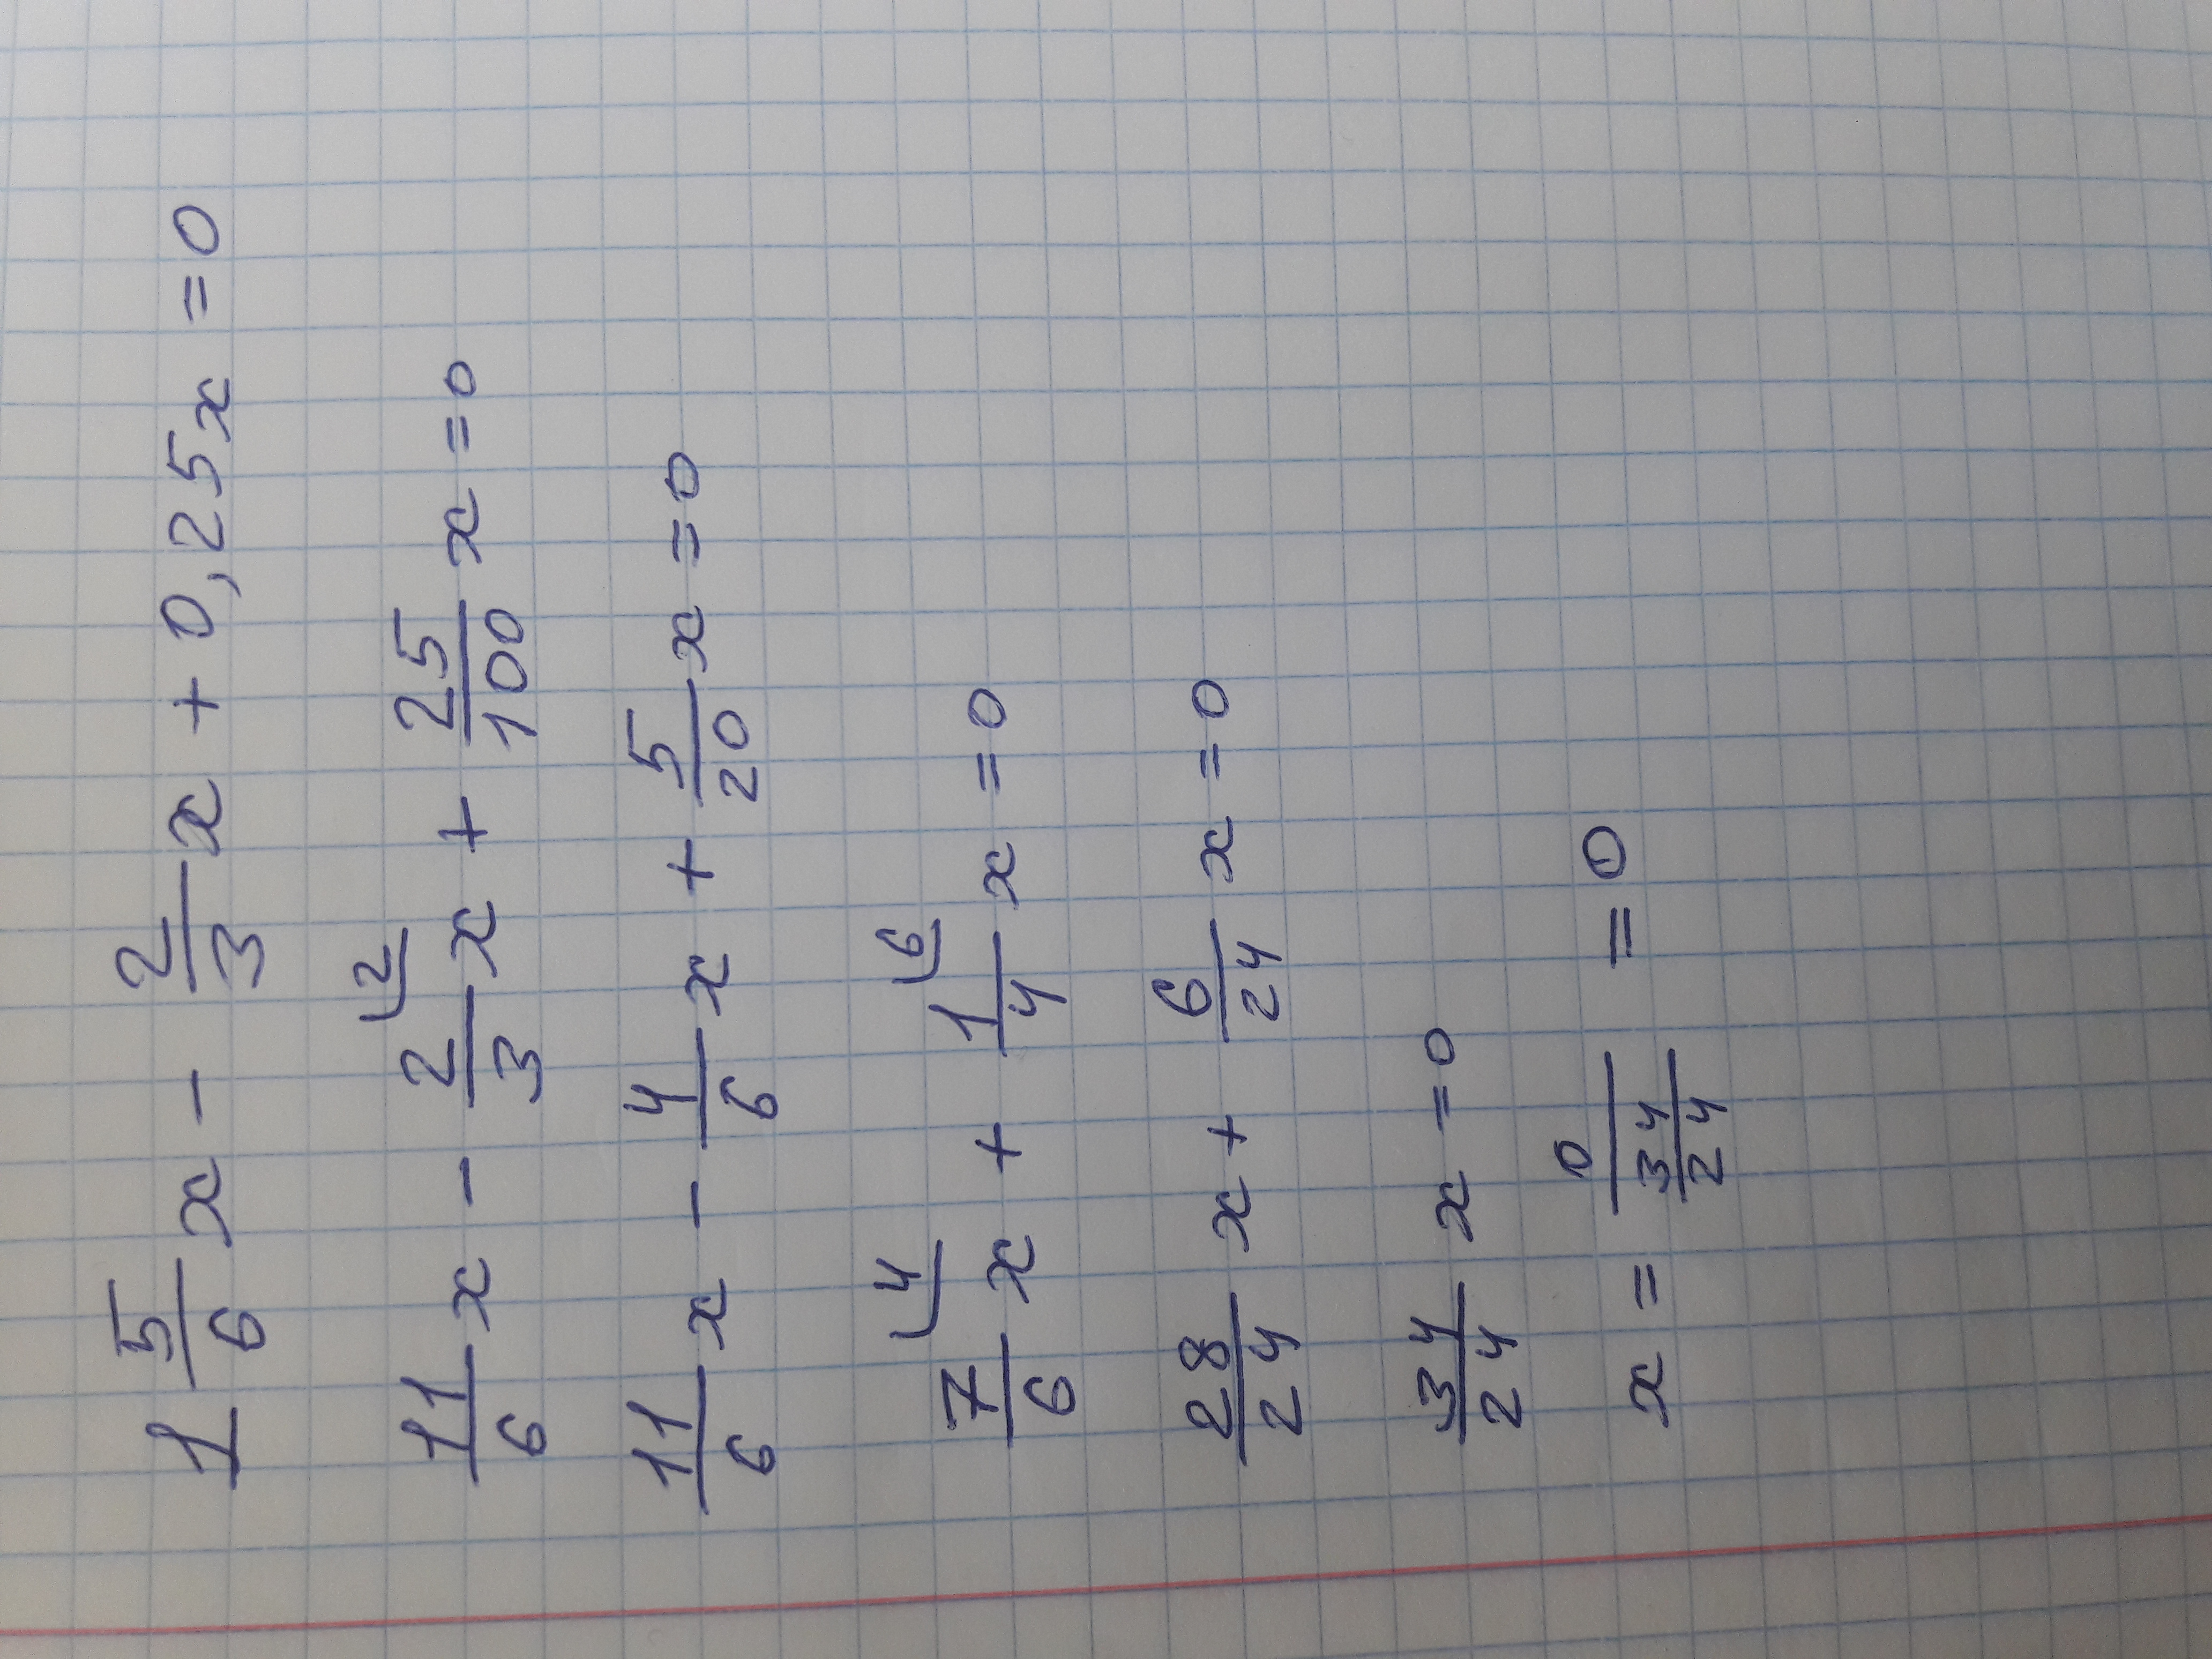 1 5/6 x - 2/3 x + 0,25x = 0
11/6 x - 2/3 \2 x + 25/100 x = 0
11/6 x - 4/6 x + 5/20 x = 0
7/6 \4 x + 1/4 \6 x = 0
28/24 x + 6/24 x = 0
34/24 x = 0
x = 0/(34/24) = 0